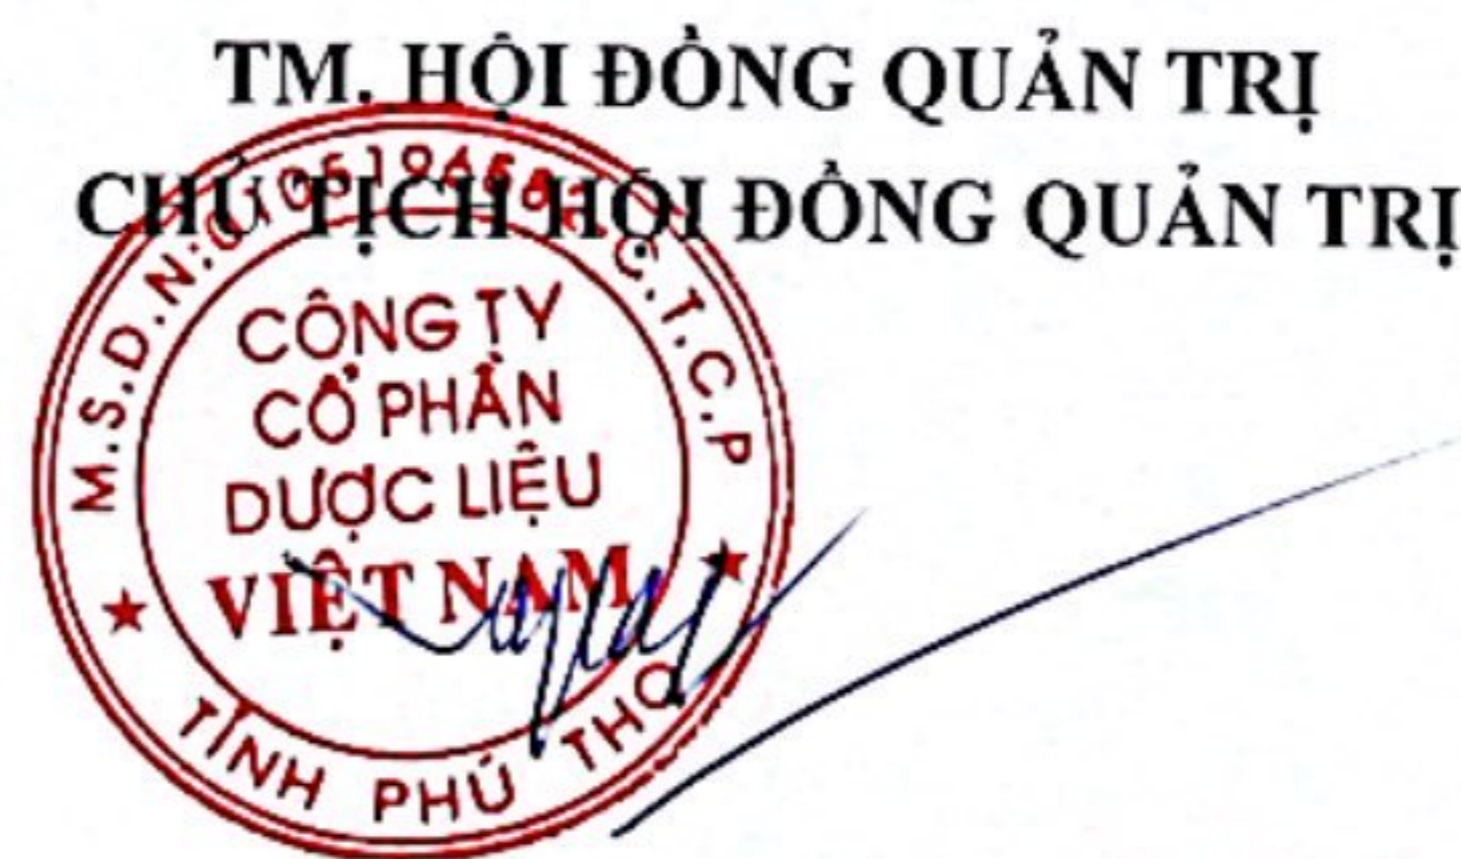 TM. HỘI ĐỒNG QUẢN TRỊ
CHỦ TỊCH HỘI ĐỒNG QUẢN TRỊ
M.S.D.N: C.T.C.P
CÔNG TY
CỔ PHẦN
DƯỢC LIỆU
VIỆT NAM
TỈNH PHÚ THỌ